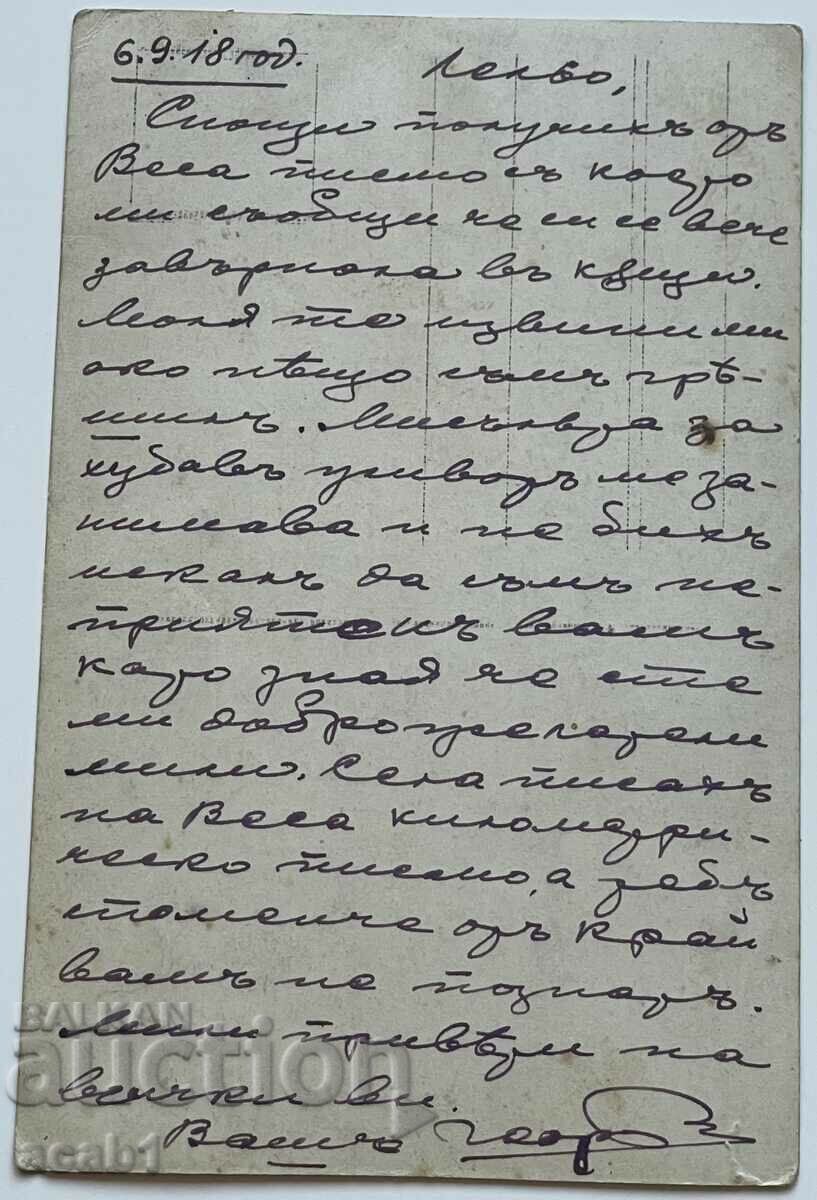 6.9.18 год.
Ленко,
Снощи получихъ отъ
Веса писмо съ което
ми съобщи че си се вече
завърнала въ кѫщи.
Моля те извини ми
ако нѣщо съмъ грѣ-
шилъ. Мисъльта за
хубавъ уговоръ ме за-
нимава и не бихъ
искалъ да съмъ не-
приятенъ вамъ
като зная че сте
ми доброжелателни
мили. Сега писахъ
на Веса километри-
ческо писмо, а тебѣ
отъ край
вамъ не познатъ.
Мили привѣти на
всички ви.
Вашъ Георг
BALKAN
auction
acab1